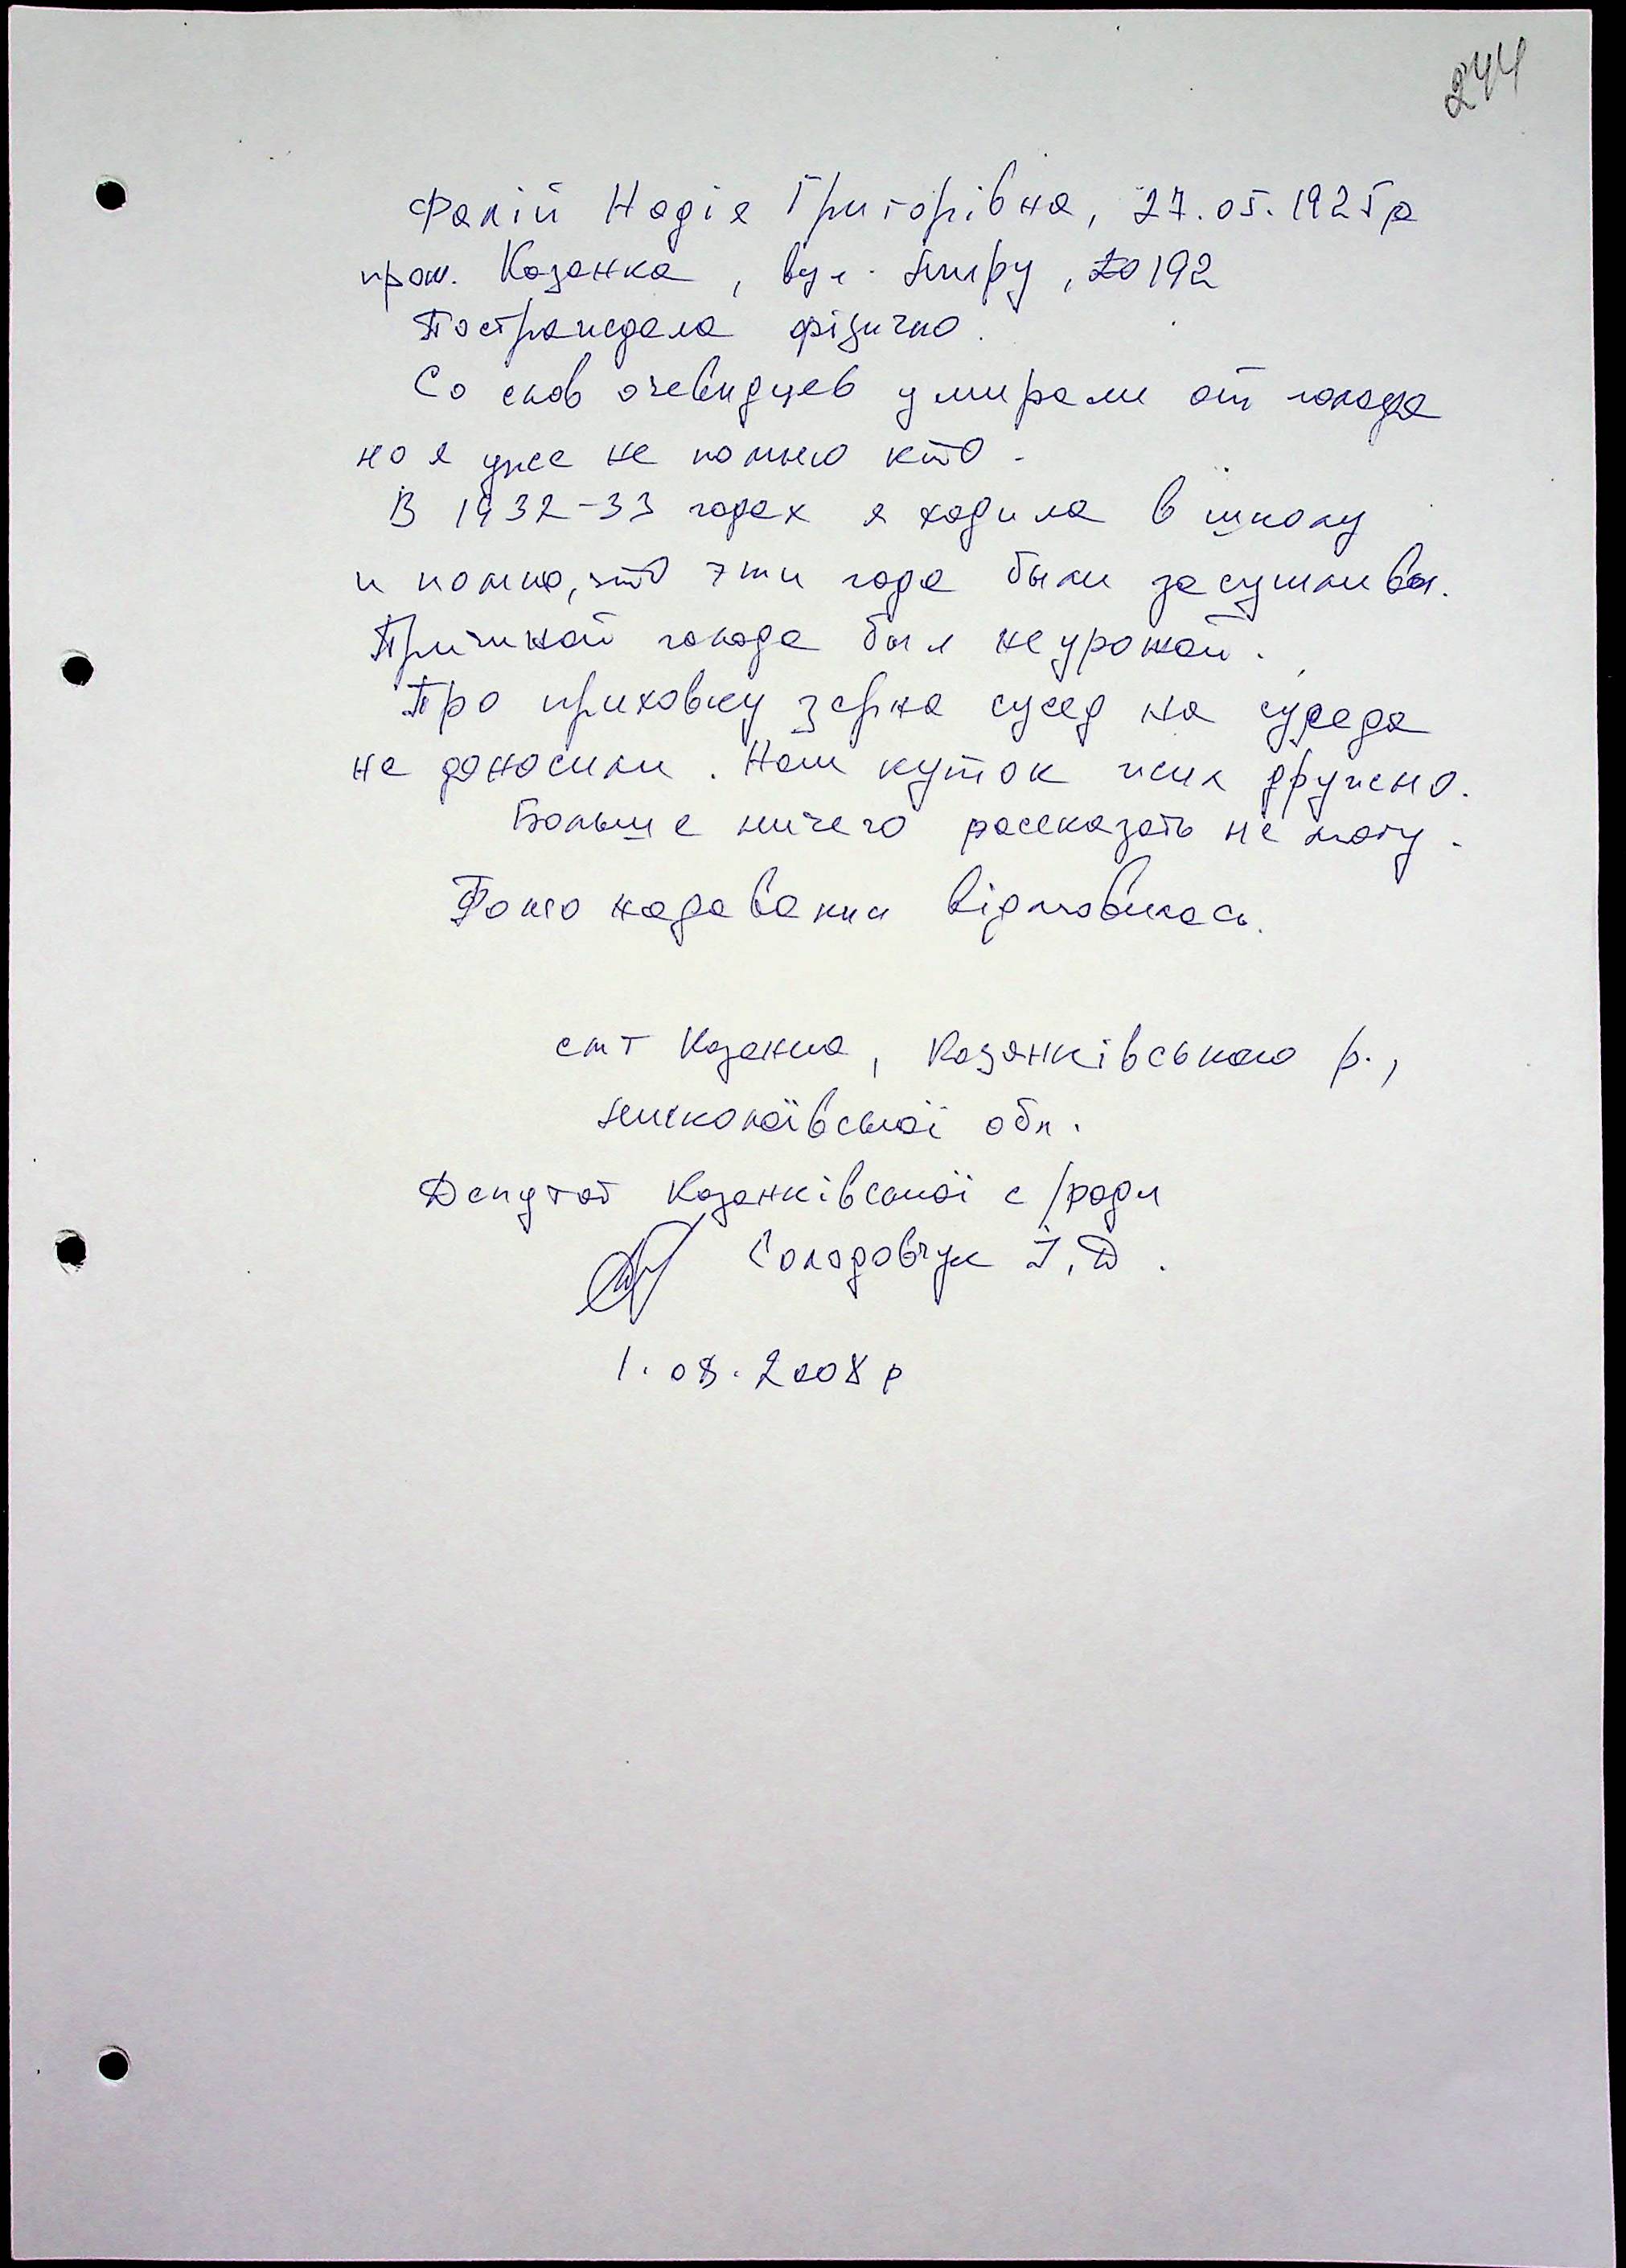 244
Фалій Надія Григорівна, 27.05.1925р
прож. Казанка, вул. Миру, 192
Постраждала фізично.
Со слов очевидцев умирали от голода
но я уже не помню кто.
В 1932-33 годах я ходила в школу
и помню, что эти года были засушливы.
Причиной голода был неурожай.
Про приховку зерна сусед на суседа
не доносили. Наш куток жил дружно.
Больше ничего рассказать не могу.
Фото надавання відмовилась.
смт Казанка, Казанківського р.,
Миколаївської обл.
Депутат Казанківської с/ради
Солодовчук І.Д.
1.08.2008р